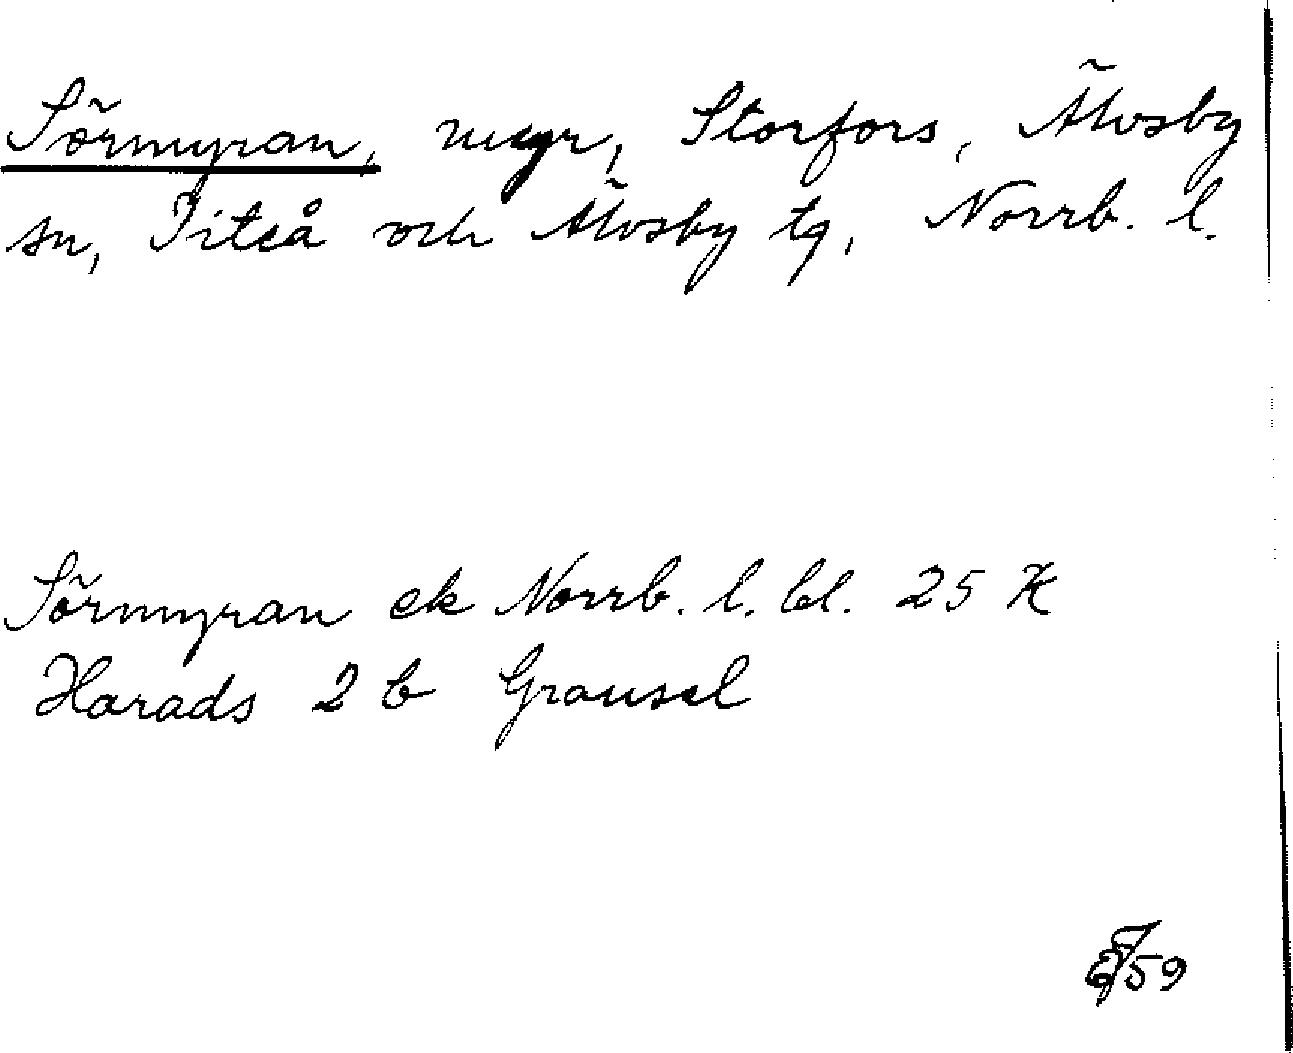 Sörmyran, myr, Storfors, Älvsby
sn, Piteå och Älvsby tg, Norrb. l.
Sörmyran ek Norrb. l. bl. 25 K
Harads 2 b Grausel
59